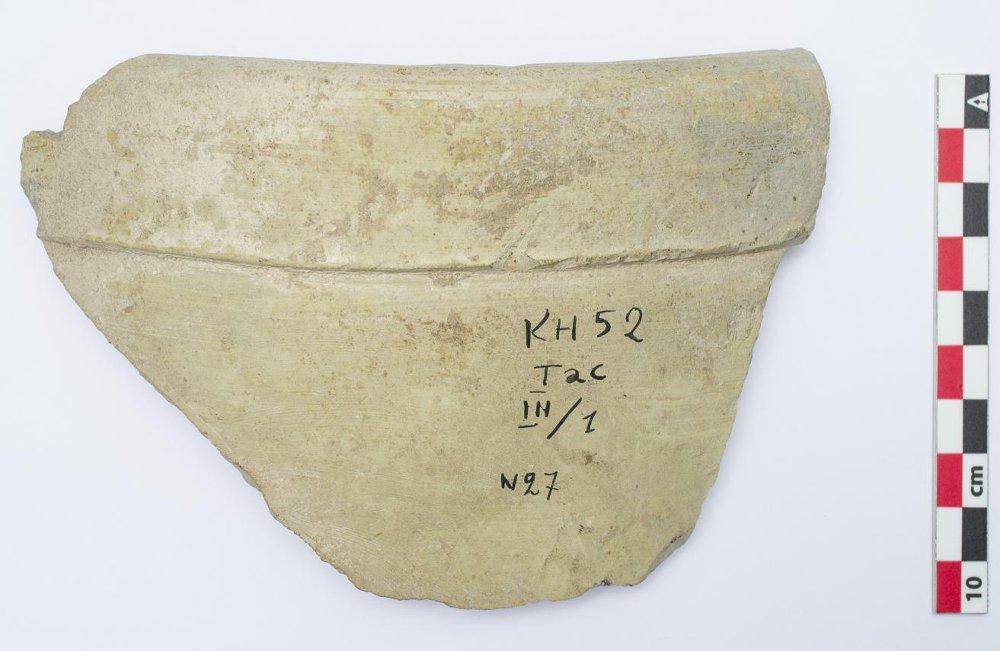 KH 52
Tac
IN/1
N27
A
cm
10